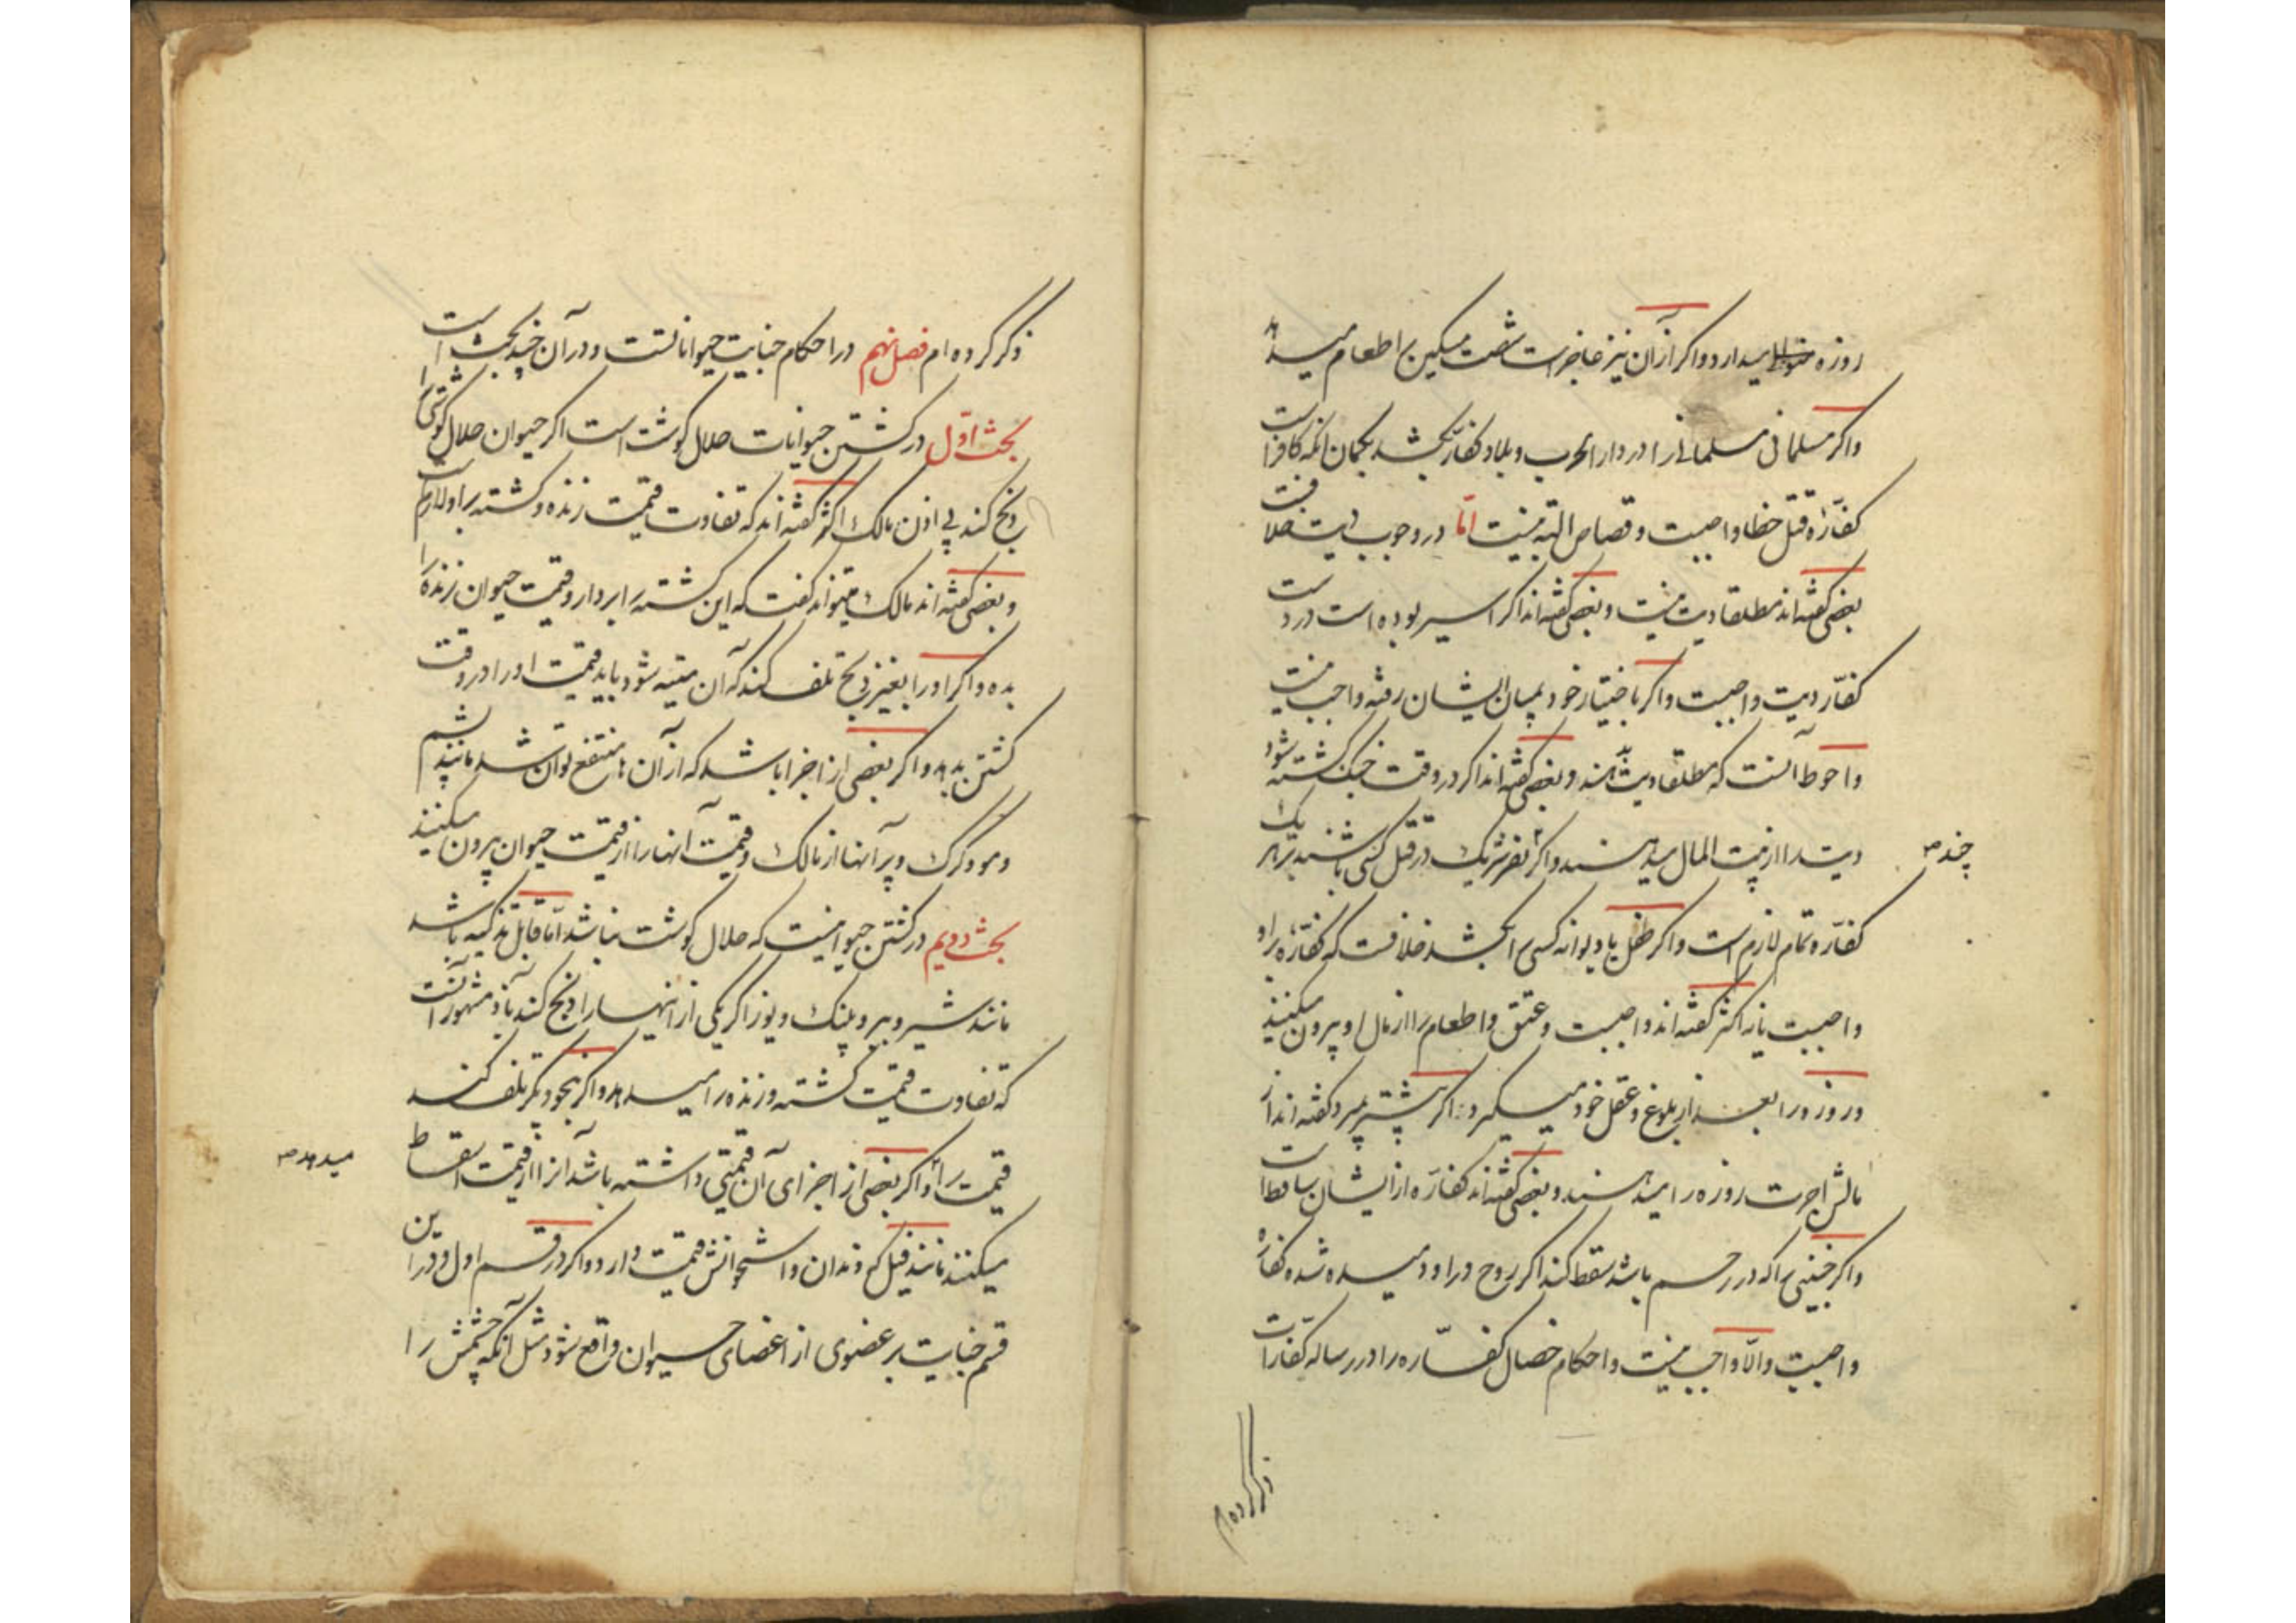 روزه متوالی میدارد و اکر از آن نیز عاجز است شصت مسکین را اطعام میدهد
و اکر مسلمانی مسلمانی را در دار الحرب و بلاد کفار بکشد بکمان آنکه کافر است
کفاره قتل خطا واجبست و قصاص البته نیست اما در وجوب دیت خلافست
بعضی کفته‌اند مطلقا دیت نیست و بعضی کفته‌اند اکر اسیر بوده است در دست
کفار دیت واجبست و اکر باختیار خود بمیان ایشان رفته واجب نیست
و احوط آنست که مطلقا دیت بدهند و بعضی کفته‌اند اکر در وقت جنک کشته شود
دیت را از بیت المال میدهند و اکر چند نفر شریک در قتل کسی باشند بر هر یک
چند صح
کفاره تمام لازم است و اکر طفل یا دیوانه کسی را بکشد خلافست که کفاره بر او
واجبست یا نه اکثر کفته‌اند واجبست و عتق و اطعام را از مال او بیرون میکنند
و روزه را بعد از بلوغ و عقل خود میکیرد و اکر پیشتر بمیرد کفته‌اند از
مالش اجرت روزه را میدهند و بعضی کفته‌اند کفاره از ایشان ساقط است
و اکر جنینی را که در رحم باشد سقط کند اکر روح در او دمیده شده کفاره
واجبست و الا واجب نیست و احکام خصال کفاره را در رساله کفارات
ذکر کرده ام
ذکر کرده ام فصل نهم در احکام جنایت حیواناتست و در آن چند بحث است
بحث اول در کشتن حیوانات حلال کوشت است اکر حیوان حلال کوشتی را
ذبح کند بی اذن مالک اکثر کفته‌اند که تفاوت قیمت زنده و کشته بر او لازم است
و بعضی کفته‌اند مالک میتواند کفت که این کشته را بردار و قیمت حیوان زنده را
بده و اکر او را بغیر ذبح تلف کند که آن میته شود باید قیمت او را در وقت
کشتن بدهد و اکر بعضی از اجزا باشد که از آن ها منتفع توان شد مانند پشم
و مو و کرک و پر آنها از مالک و قیمت آنها را از قیمت حیوان بیرون میکنند
بحث دویم در کشتن حیوانیست که حلال کوشت نباشد اما قابل تذکیه باشد
مانند شیر و ببر و پلنک و یوز اکر یکی از اینها را ذبح کند باز مشهور آنست
که تفاوت قیمت کشته و زنده را میدهد و اکر بنحو دیکر تلف کند
قیمت را و اکر بعضی از اجزای آن قیمتی داشته باشد آنرا از قیمت اسقاط
میدهد صح
میکنند مانند فیل که دندان و استخوانش قیمت دارد و اکر در قسم اول و در این
قسم جنایت بر عضوی از اعضای حیوان واقع شود مثل آنکه چشمش را